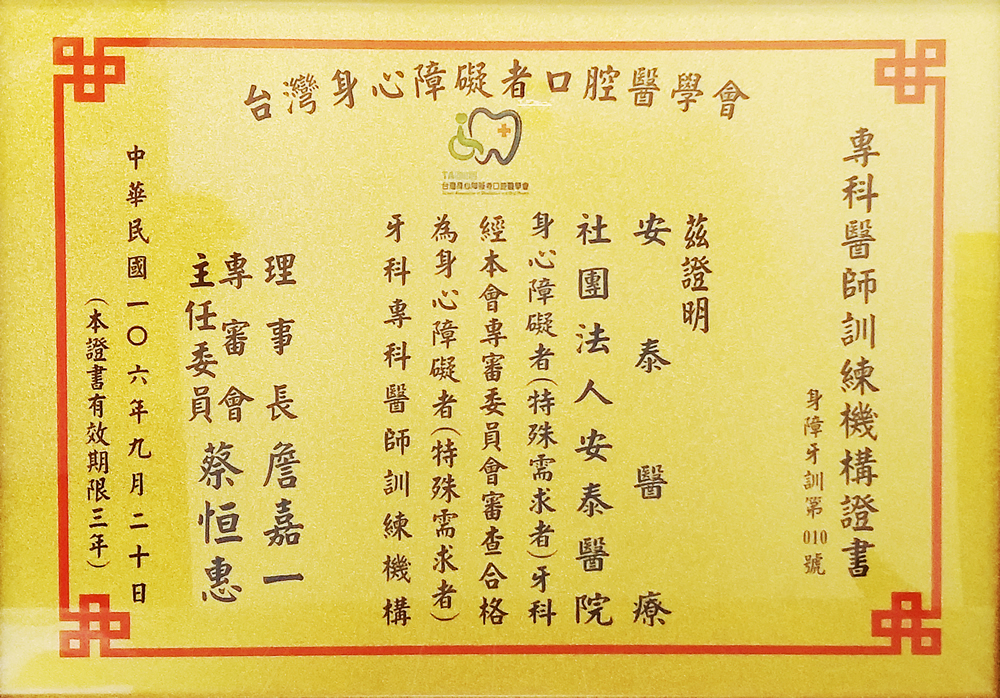 台灣身心障礙者口腔醫學會
專科醫師訓練機構證書
身障牙訓第010號
茲證明
安泰醫療
社團法人安泰醫院
身心障礙者(特殊需求者)牙科
經本會專審委員會審查合格
為身心障礙者(特殊需求者)
牙科專科醫師訓練機構
理事長詹嘉一
專審會
主任委員蔡恒惠
中華民國一〇六年九月二十日
(本證書有效期限三年)